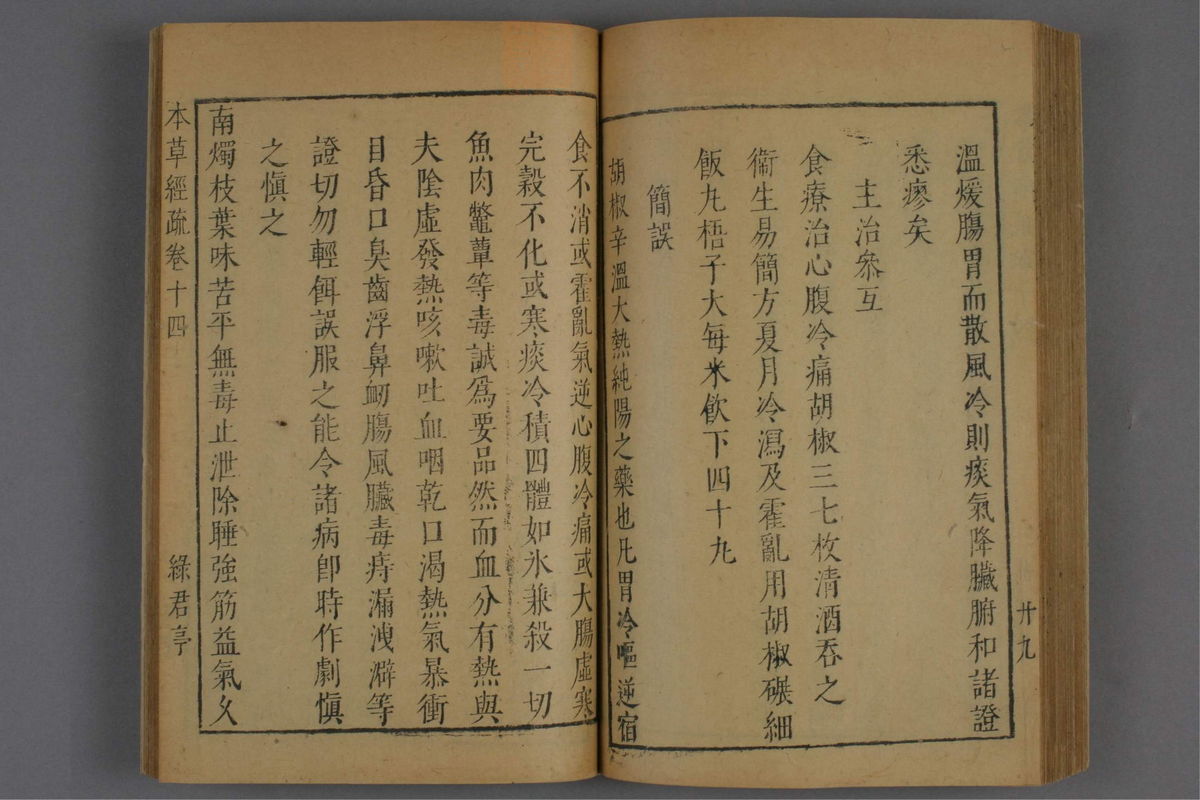 廾九
溫煖腸胃而散風冷則痰氣降臟腑和諸證
悉瘳矣
主治叅互
食療治心腹冷痛胡椒三七枚清酒吞之
衛生易簡方夏月冷瀉及霍亂用胡椒碾細
飯丸梧子大每米飲下四十九
簡誤
胡椒辛溫大熱純陽之藥也凡胃冷嘔逆宿
食不消或霍亂氣逆心腹冷痛或大腸虛寒
完穀不化或寒痰冷積四體如氷兼殺一切
魚肉鱉蕈等毒誠爲要品然而血分有熱與
夫陰虛發熱咳嗽吐血咽乾口渴熱氣暴衝
目昏口臭齒浮鼻衂腸風臟毒痔漏洩澼等
證切勿輕餌誤服之能令諸病卽時作劇慎
之慎之
南燭枝葉味苦平無毒止泄除睡強筋益氣久
本草經疏卷十四
綠君亭